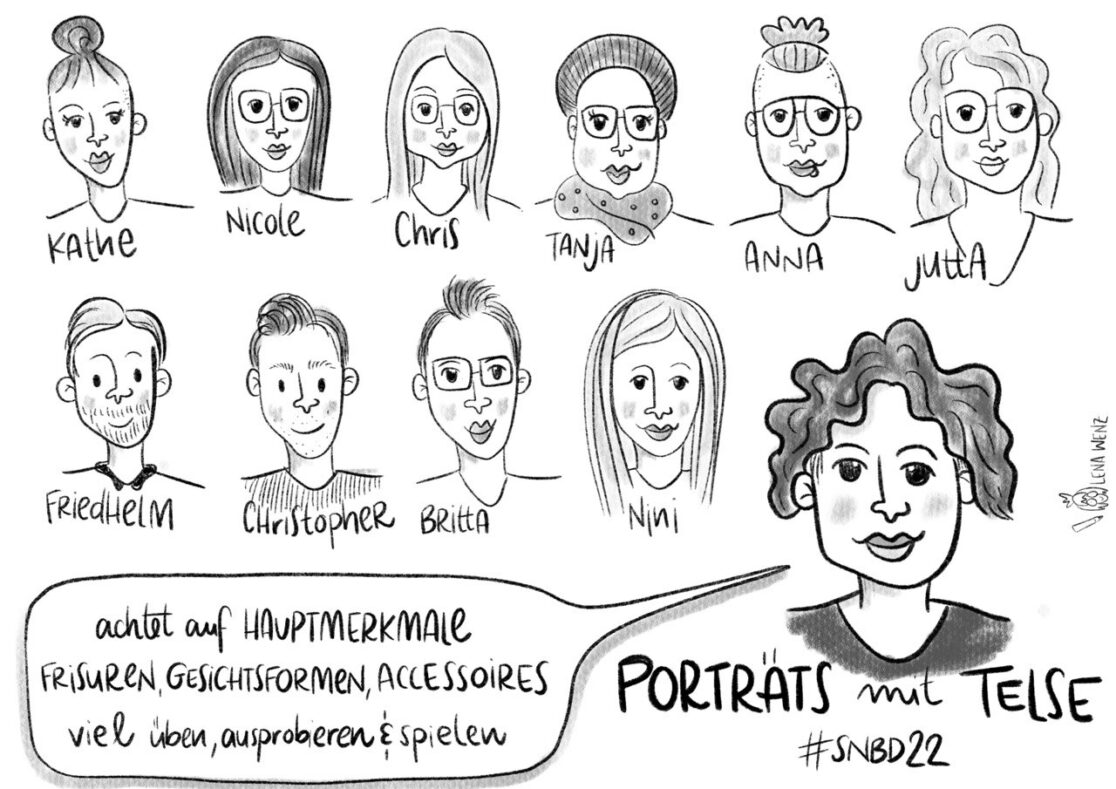 KAtHe
NicoLe
Chris
TANjA
ANNA
juttA
FRiedHeLM
CHRistopheR
BRittA
Nini
achtet auf HAUPTMERKMALe
FRiSUReN, GeSiCHTSFORMeN, ACCESSOiRES
viel üben, ausprobieren & spielen
PORTRÄTS mit TELSE
#SNBD22
LENA WENZ